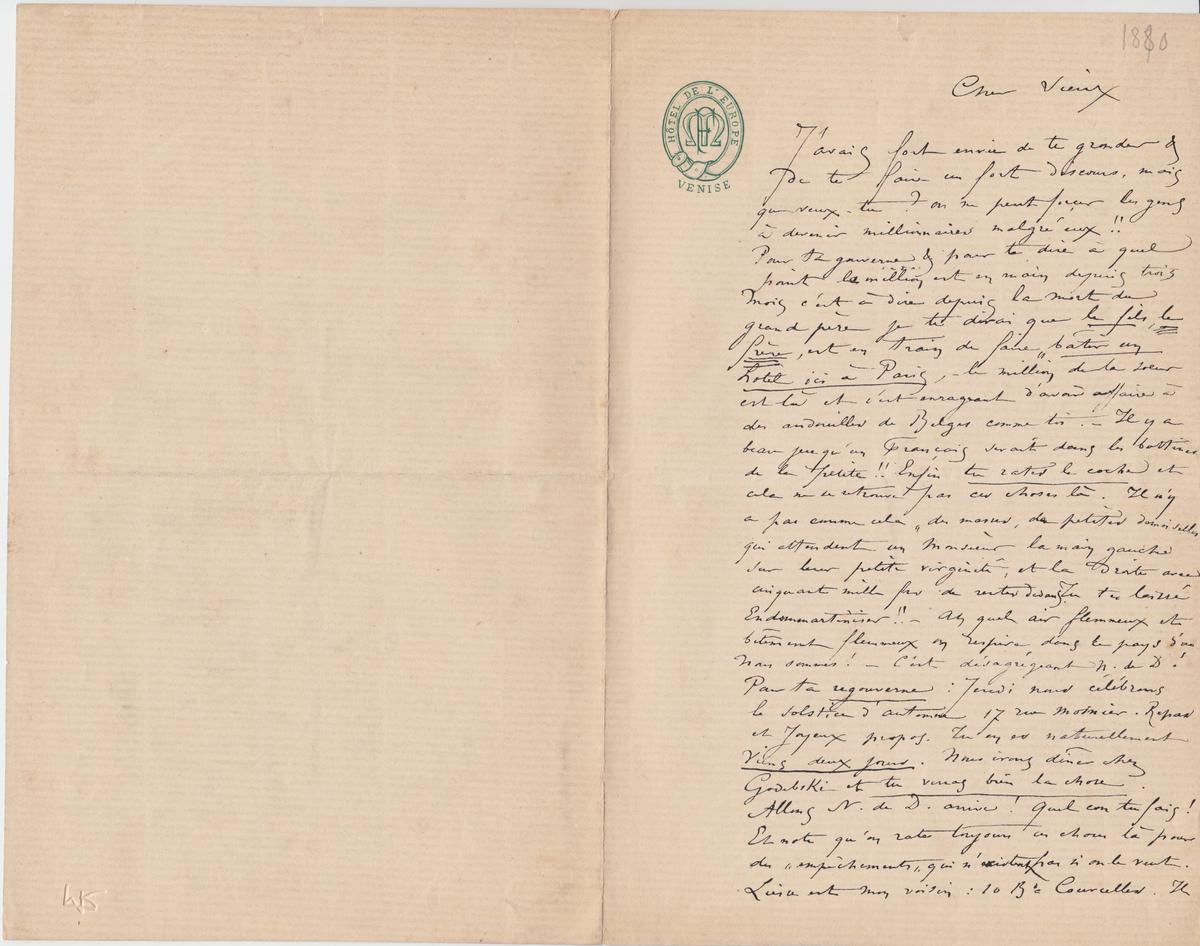 1880
HÔTEL DE L'EUROPE
VENISE
Cher Vieux
J'avais fort envie de te gronder &
de te faire un fort discours, mais
que veux-tu ? on ne peut forcer les gens
à devenir millionnaires malgré eux !!
Pour ta gouverne & pour te dire à quel
point le million est en main depuis trois
mois c'est à dire depuis la mort du
grand père je te dirai que le fils, le
frère, est en train de faire bâtir un
hotel ici à Paris, - le million de la soeur
est là et c'est enrageant d'avoir affaire à
des andouilles de Belges comme toi ! - Il y a
beau jeu qu'un Français serait dans les bottines
de la petite !! Enfin tu rates le coche et
cela ne se retrouve pas ces choses là. Il n'y
a pas comme cela „des masses„ de petites demoiselles
qui attendent un Monsieur la main gauche
sur leur petite virginité, et la Droite avec
cinquante mille frs de rentes dedans. Tu t'es laissé
Endommartiniser !! - Ah quel air flemmeux et
bêtement flemmeux on respire dans le pays d'où
nous sommes ! - C'est désagrégeant N. de D !
Par ta regouverne : Jeudi nous célébrons
le solstice d'automne 17 rue Mosnier. Repas
et Joyeux propos. Tu en es naturellement
Viens deux jours. Nous irons dîner chez
Godebski et tu verras bien la chose.
Allons N. de D. arrive ! Quel con tu fais !
Et note qu'on rate toujours ces choses là pour
des „empêchements„ qui n'existent pas si on le veut.
Liesse est mon voisin : 10 Bd Courcelles. Il